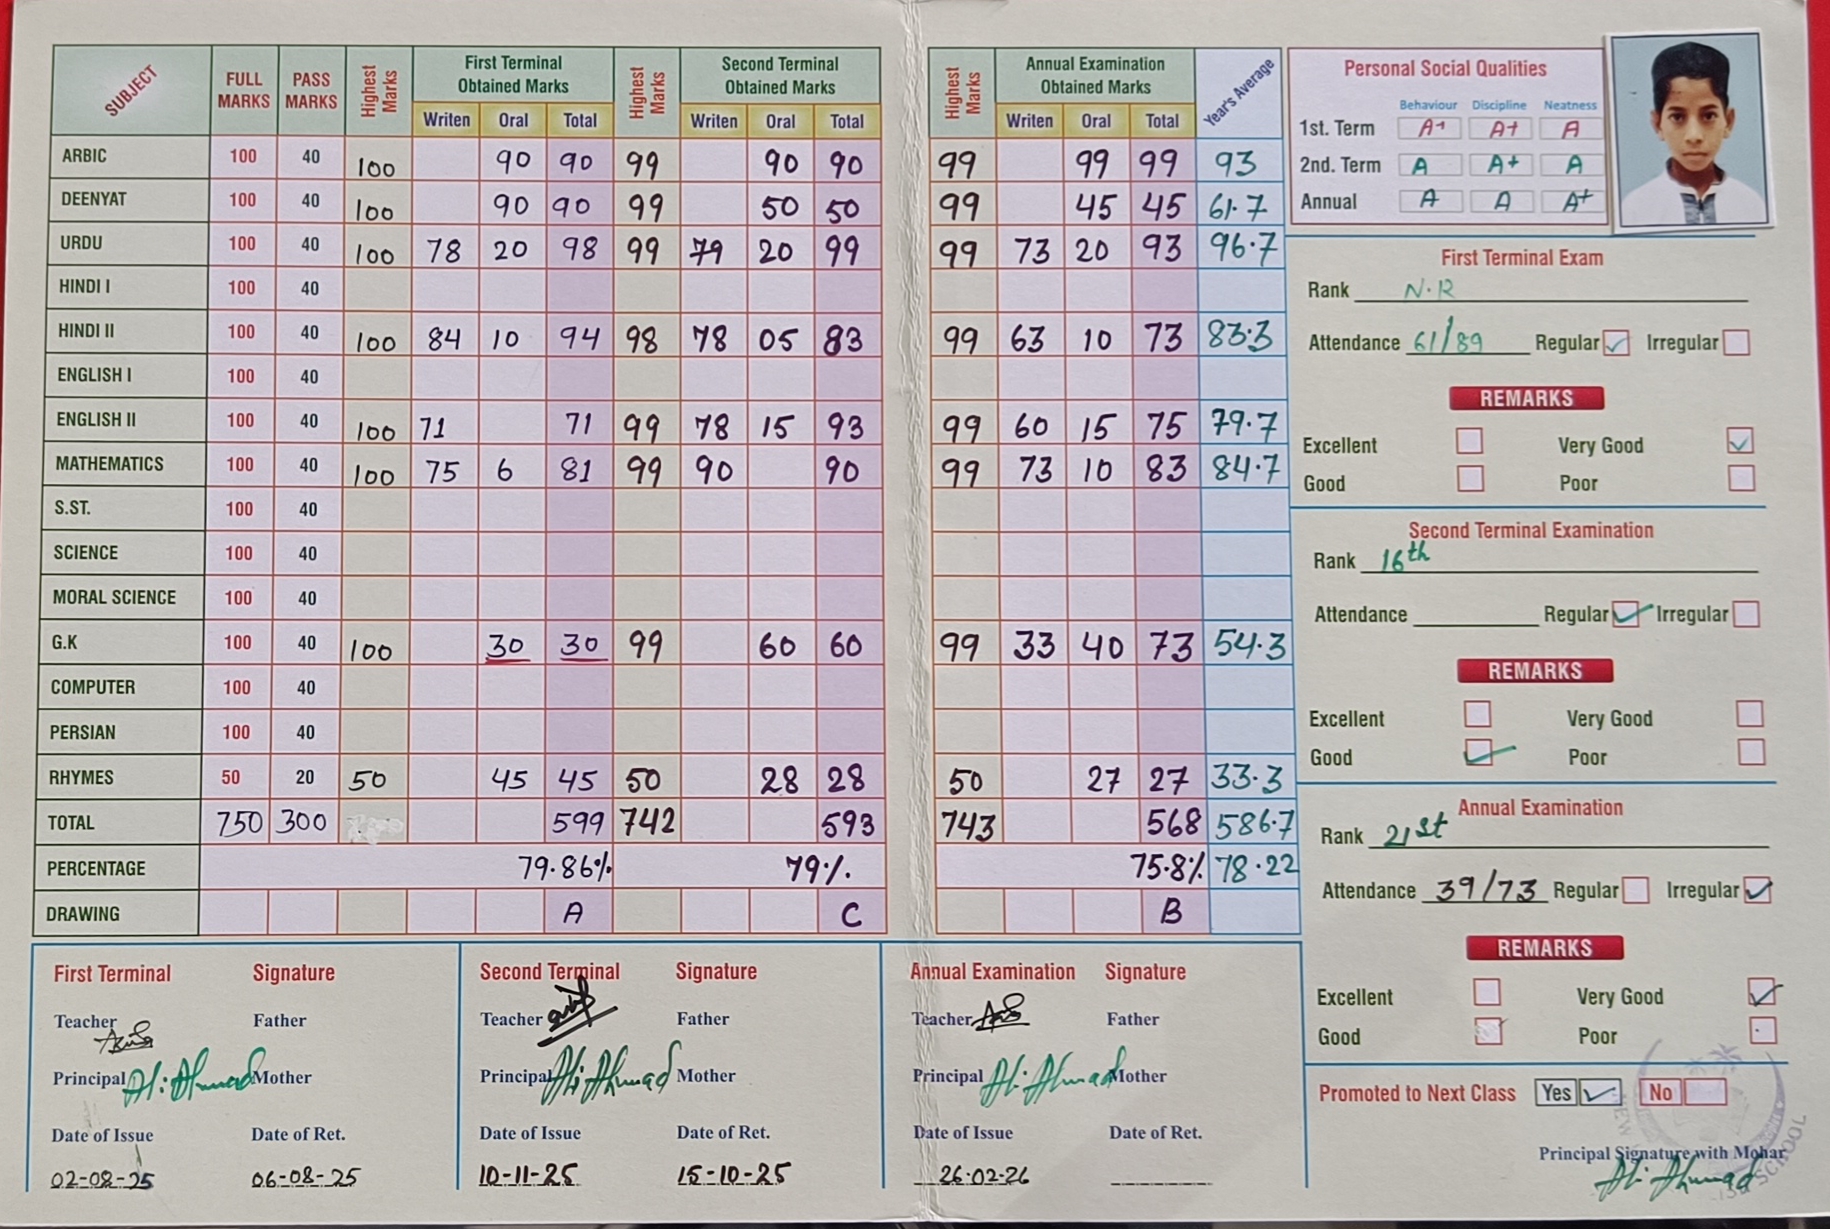 SUBJECT FULL MARKS PASS MARKS Highest Marks First Terminal Obtained Marks Highest Marks Second Terminal Obtained Marks Highest Marks Annual Examination Obtained Marks Year's Average
Writen Oral Total Writen Oral Total Writen Oral Total
ARBIC 100 40 100 90 90 99 90 90 99 99 99 93
DEENYAT 100 40 100 90 90 99 50 50 99 45 45 61.7
URDU 100 40 100 78 20 98 99 79 20 99 99 73 20 93 96.7
HINDI I 100 40
HINDI II 100 40 100 84 10 94 98 78 05 83 99 63 10 73 83.3
ENGLISH I 100 40
ENGLISH II 100 40 100 71 71 99 78 15 93 99 60 15 75 79.7
MATHEMATICS 100 40 100 75 6 81 99 90 90 99 73 10 83 84.7
S.ST. 100 40
SCIENCE 100 40
MORAL SCIENCE 100 40
G.K 100 40 100 30 30 99 60 60 99 33 40 73 54.3
COMPUTER 100 40
PERSIAN 100 40
RHYMES 50 20 50 45 45 50 28 28 50 27 27 33.3
TOTAL 750 300 599 742 593 743 568 586.7
PERCENTAGE 79.86% 79% 75.8% 78.22
DRAWING A C B
First Terminal Signature
Teacher Father
Principal Ali Ahmad Mother
Date of Issue Date of Ret.
02-08-25 06-08-25
Second Terminal Signature
Teacher Father
Principal Ali Ahmad Mother
Date of Issue Date of Ret.
10-11-25 15-10-25
Annual Examination Signature
Teacher Father
Principal Ali Ahmad Mother
Date of Issue Date of Ret.
26.02-26
Personal Social Qualities
Behaviour Discipline Neatness
1st. Term A+ A+ A
2nd. Term A A+ A
Annual A A A+
First Terminal Exam
Rank N.R
Attendance 61/89 Regular Irregular
REMARKS
Excellent Very Good
Good Poor
Second Terminal Examination
Rank 16th
Attendance Regular Irregular
REMARKS
Excellent Very Good
Good Poor
Annual Examination
Rank 21st
Attendance 39/73 Regular Irregular
REMARKS
Excellent Very Good
Good Poor
Promoted to Next Class Yes No
Principal Signature with Mohar
Ali Ahmad
SCHOOL